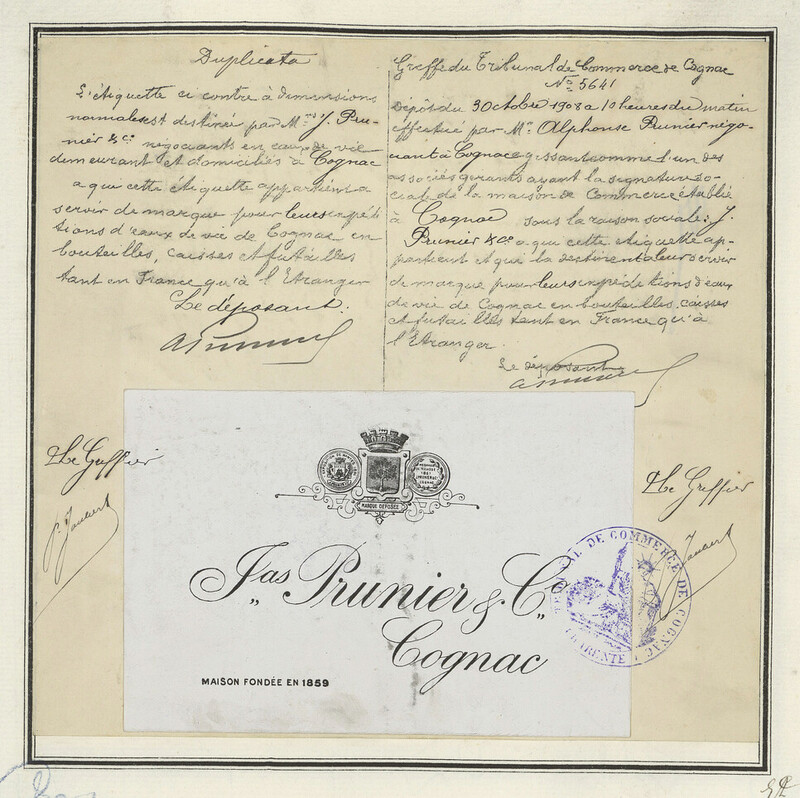 Duplicata
L'étiquette ci contre à dimensions
normales est destinée par Mrs J. Pru-
nier & Co négociants en eaux de vie
demeurant et domiciliés à Cognac
a que cette étiquette appartient a
servir de marque pour leurs expédi
tions d'eaux de vie de Cognac en
bouteilles, caisses et futailles
tant en France qu'à l'Etranger
Le déposant.
APrunier
Greffe du Tribunal de Commerce de Cognac
No 5641
Dépôt du 30 Octobre 1908 a 10 heures du matin
effectué par Mr Alphonse Prunier négo-
ciant à Cognac agissant comme l'un des
associés gerants ayant la signature so-
ciale de la maison de Commerce établie
à Cognac sous la raison sociale: J.
Prunier & Co a que cette étiquette ap-
partient et qu'il la destine a leur servir
de marque pour leurs expéditions d'eaux
de vie de Cognac en bouteilles, caisses
et futailles tant en France qu'à
l'Etranger
Le déposant
APrunier
Le Greffier
Le Greffier
MARQUE DÉPOSÉE
Jas Prunier & Co
Cognac
MAISON FONDÉE EN 1859
TRIBUNAL DE COMMERCE DE COGNAC
CHARENTE